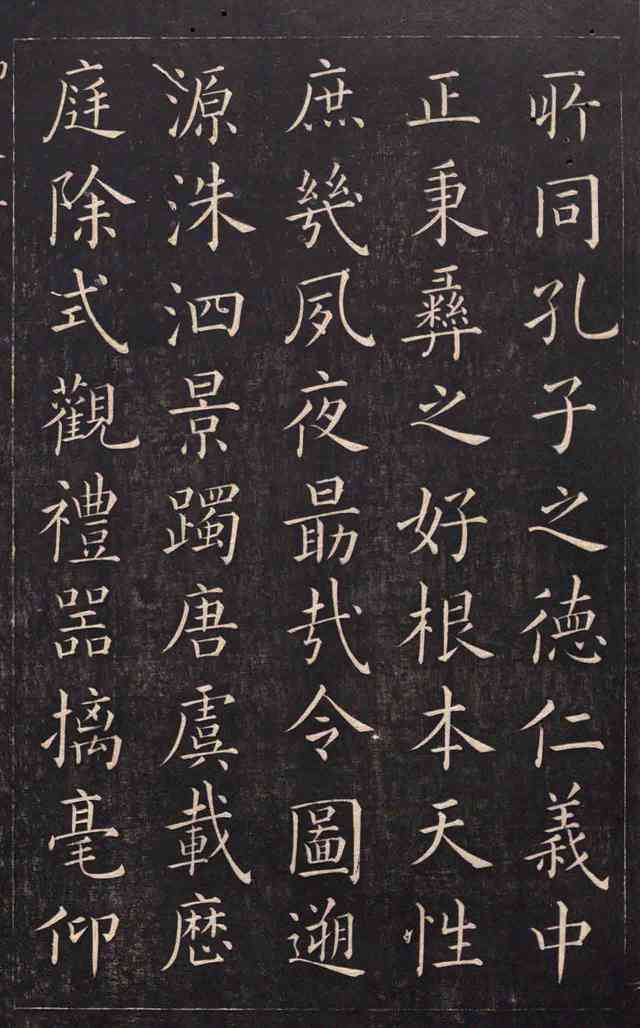 所同孔子之德仁義中
正秉彝之好根本天性
庶幾夙夜勗哉令圖遡
源洙泗景躅唐虞載歷
庭除式觀禮器摛毫仰